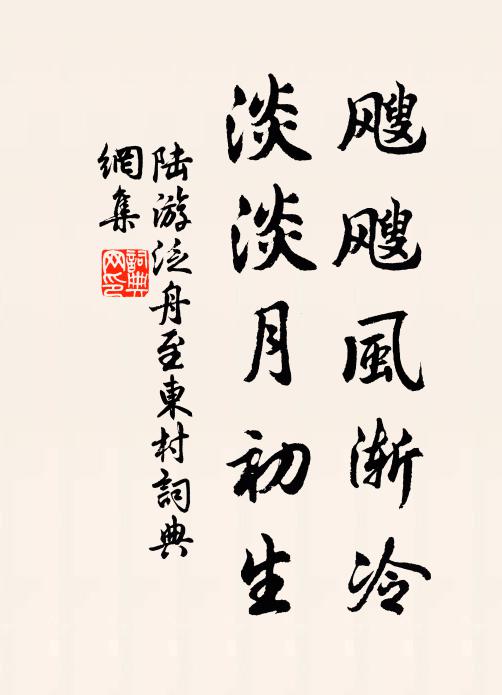 飕飕風渐冷
淡淡月初生
陆游泛舟至東村詞典
網集
詞典
网印